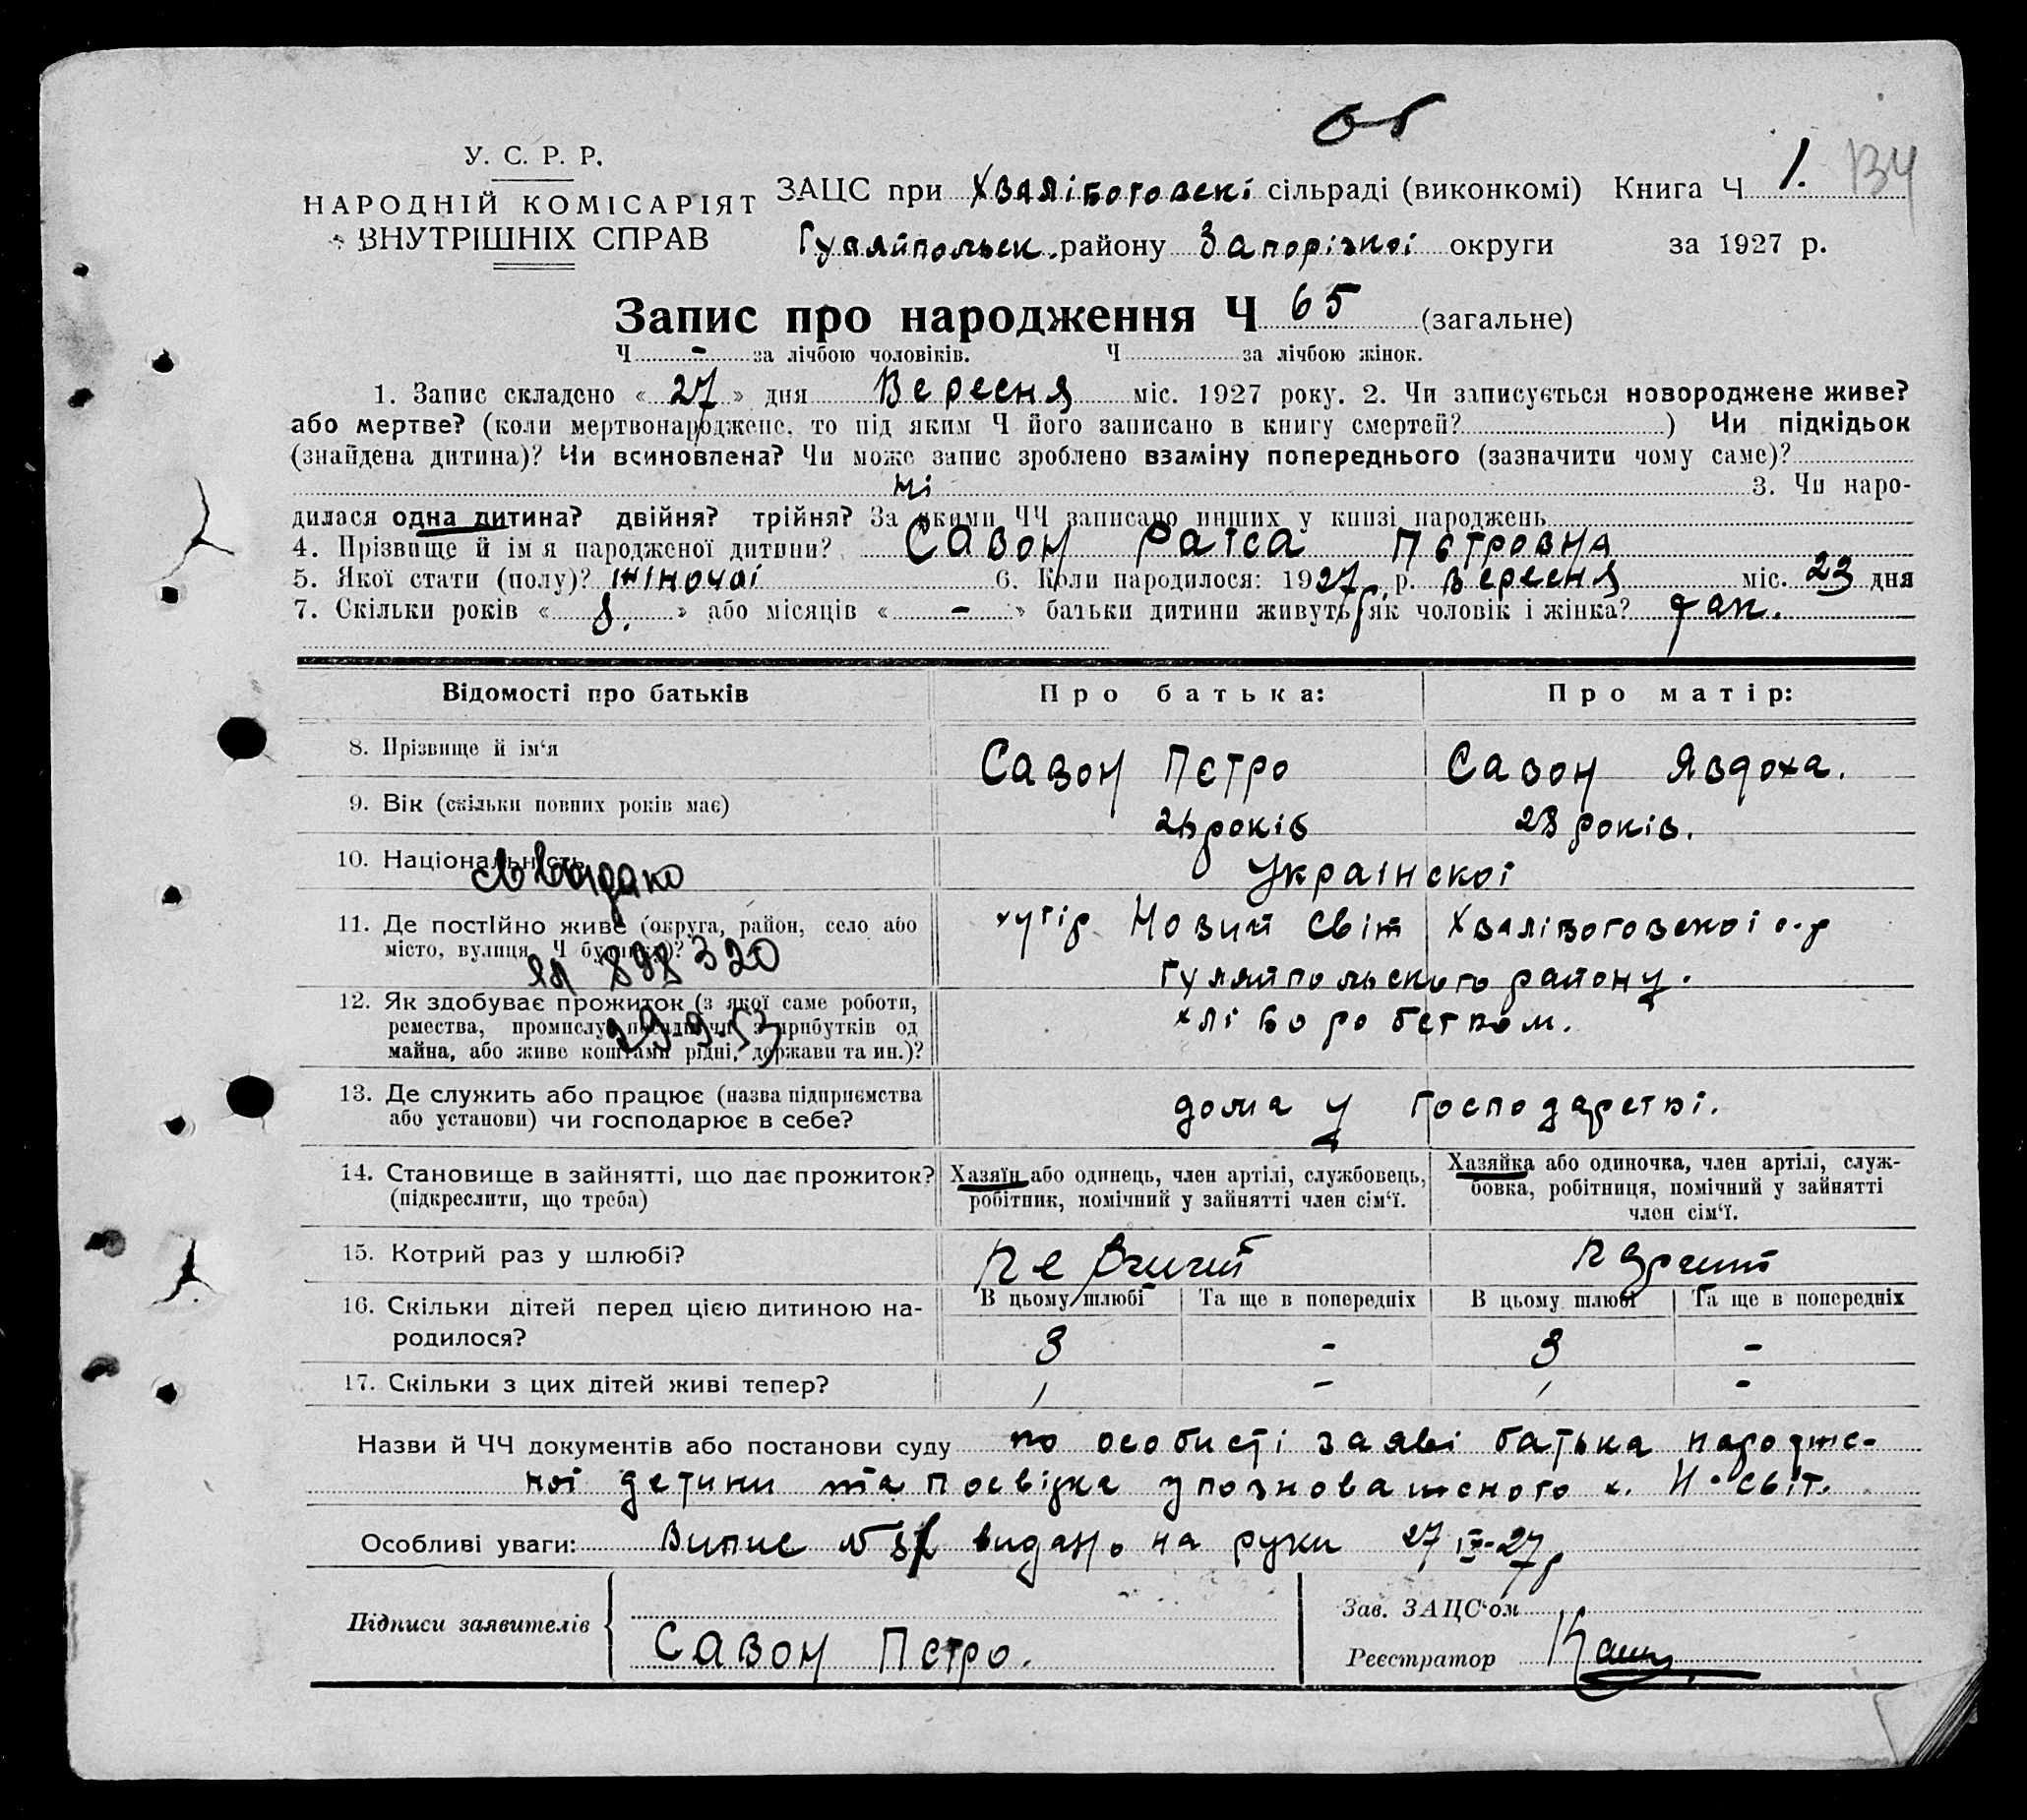 У. С. Р. Р.
НАРОДНІЙ КОМІСАРІЯТ
ВНУТРІШНІХ СПРАВ
134
ЗАЦС при Хвалібоговскі сільраді (виконкомі) Книга Ч 1.
Гуляйпольск. району Запорізкоі округи за 1927 р.
Запис про народження Ч 65 (загальне)
Ч - за лічбою чоловіків. Ч за лічбою жінок.
1. Запис складено « 27 » дня Вересня міс. 1927 року. 2. Чи записується новороджене живе?
або мертве? (коли мертвонароджене, то під яким Ч його записано в книгу смертей? ) Чи підкідьок
(знайдена дитина)? Чи всиновлена? Чи може запис зроблено взаміну попереднього (зазначити чому саме)?
ні 3. Чи наро-
дилася одна дитина? двійня? трійня? За якими ЧЧ записано инших у книзі народжень
4. Прізвище й ім я народженої дитини? Савон Раіса Петровна
5. Якої стати (полу)? жіночоі 6. Коли народилося: 1927 р. р. вересня міс. 23 дня
7. Скільки років « 8. » або місяців « - » батьки дитини живуть як чоловік і жінка? так.
Відомості про батьків Про батька: Про матір:
8. Прізвище й ім'я Савон Петро Савон Явдоха.
9. Вік (скільки повних років має) років 28 років.
10. Національність Украінскоі
11. Де постійно живе (округа, район, село або хутір Новий Світ Хвалібоговскоі с.р
місто, вулиця, Ч будинку)? Гуляйпольского району.
898320
12. Як здобуває прожиток (з якої саме роботи, хліборобством.
ремества, промислу, посади чи з прибутків од
29-9-53
майна, або живе коштами рідні, держави та ин.)?
13. Де служить або працює (назва підприємства дома у господарстві.
або установи) чи господарює в себе?
14. Становище в зайнятті, що дає прожиток? Хазяїн або одинець, член артілі, службовець, Хазяйка або одиночка, член артілі, служ-
(підкреслити, що треба) робітник, помічний у зайнятті член сім'ї. бовка, робітниця, помічний у зайнятті
член сім'ї.
15. Котрий раз у шлюбі? первший перший
16. Скільки дітей перед цією дитиною на- В цьому шлюбі Та ще в попередніх В цьому шлюбі Та ще в попередніх
родилося? 3 - 3 -
17. Скільки з цих дітей живі тепер? 1 - 1 -
Назви й ЧЧ документів або постанови суду по особисті заяві батька народже-
ноі детини та посвідка упозноваженого х. Н. Світ.
Особливі уваги: Випис № видано на руки 27 IX-27р
Підписи заявителів Савон Петро.
Зав. ЗАЦС'ом
Реєстратор